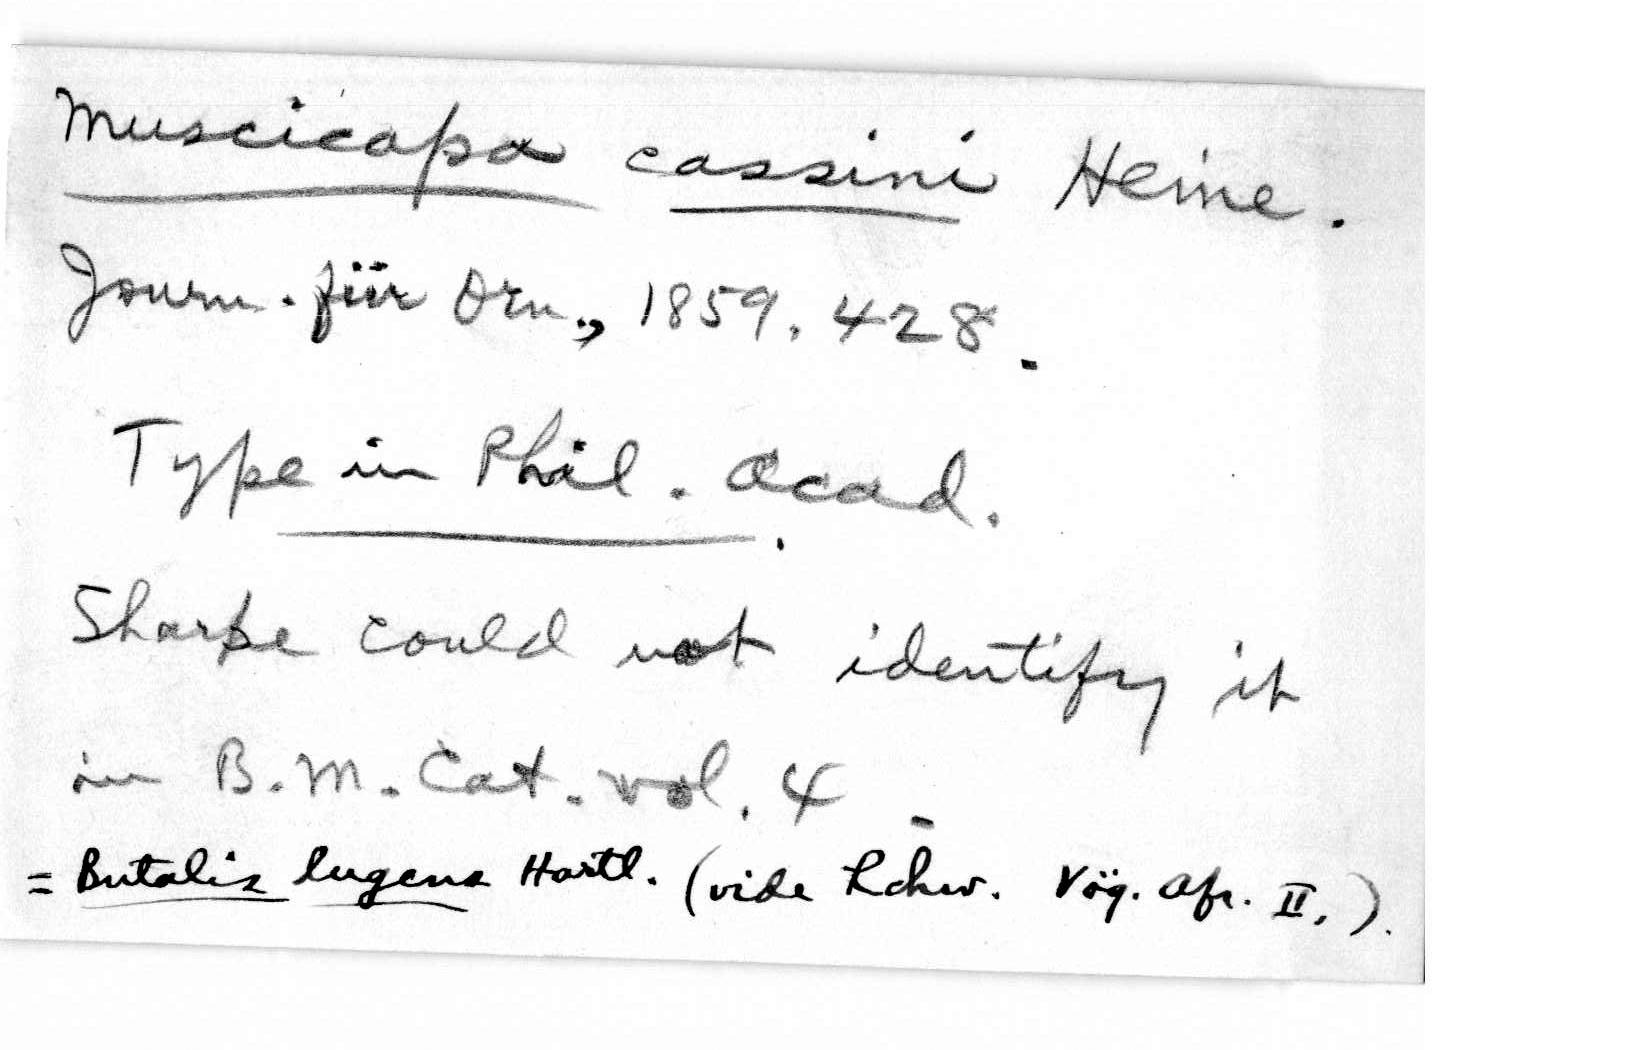 Muscicapa cassini Heine.
Journ. für Orn., 1859. 428.
Type in Phil. Acad.
Sharpe could not identify it
in B. M. Cat. vol. 4.
= Butalis lugens Hartl. (vide Rchw. Vög. Afr. II.).